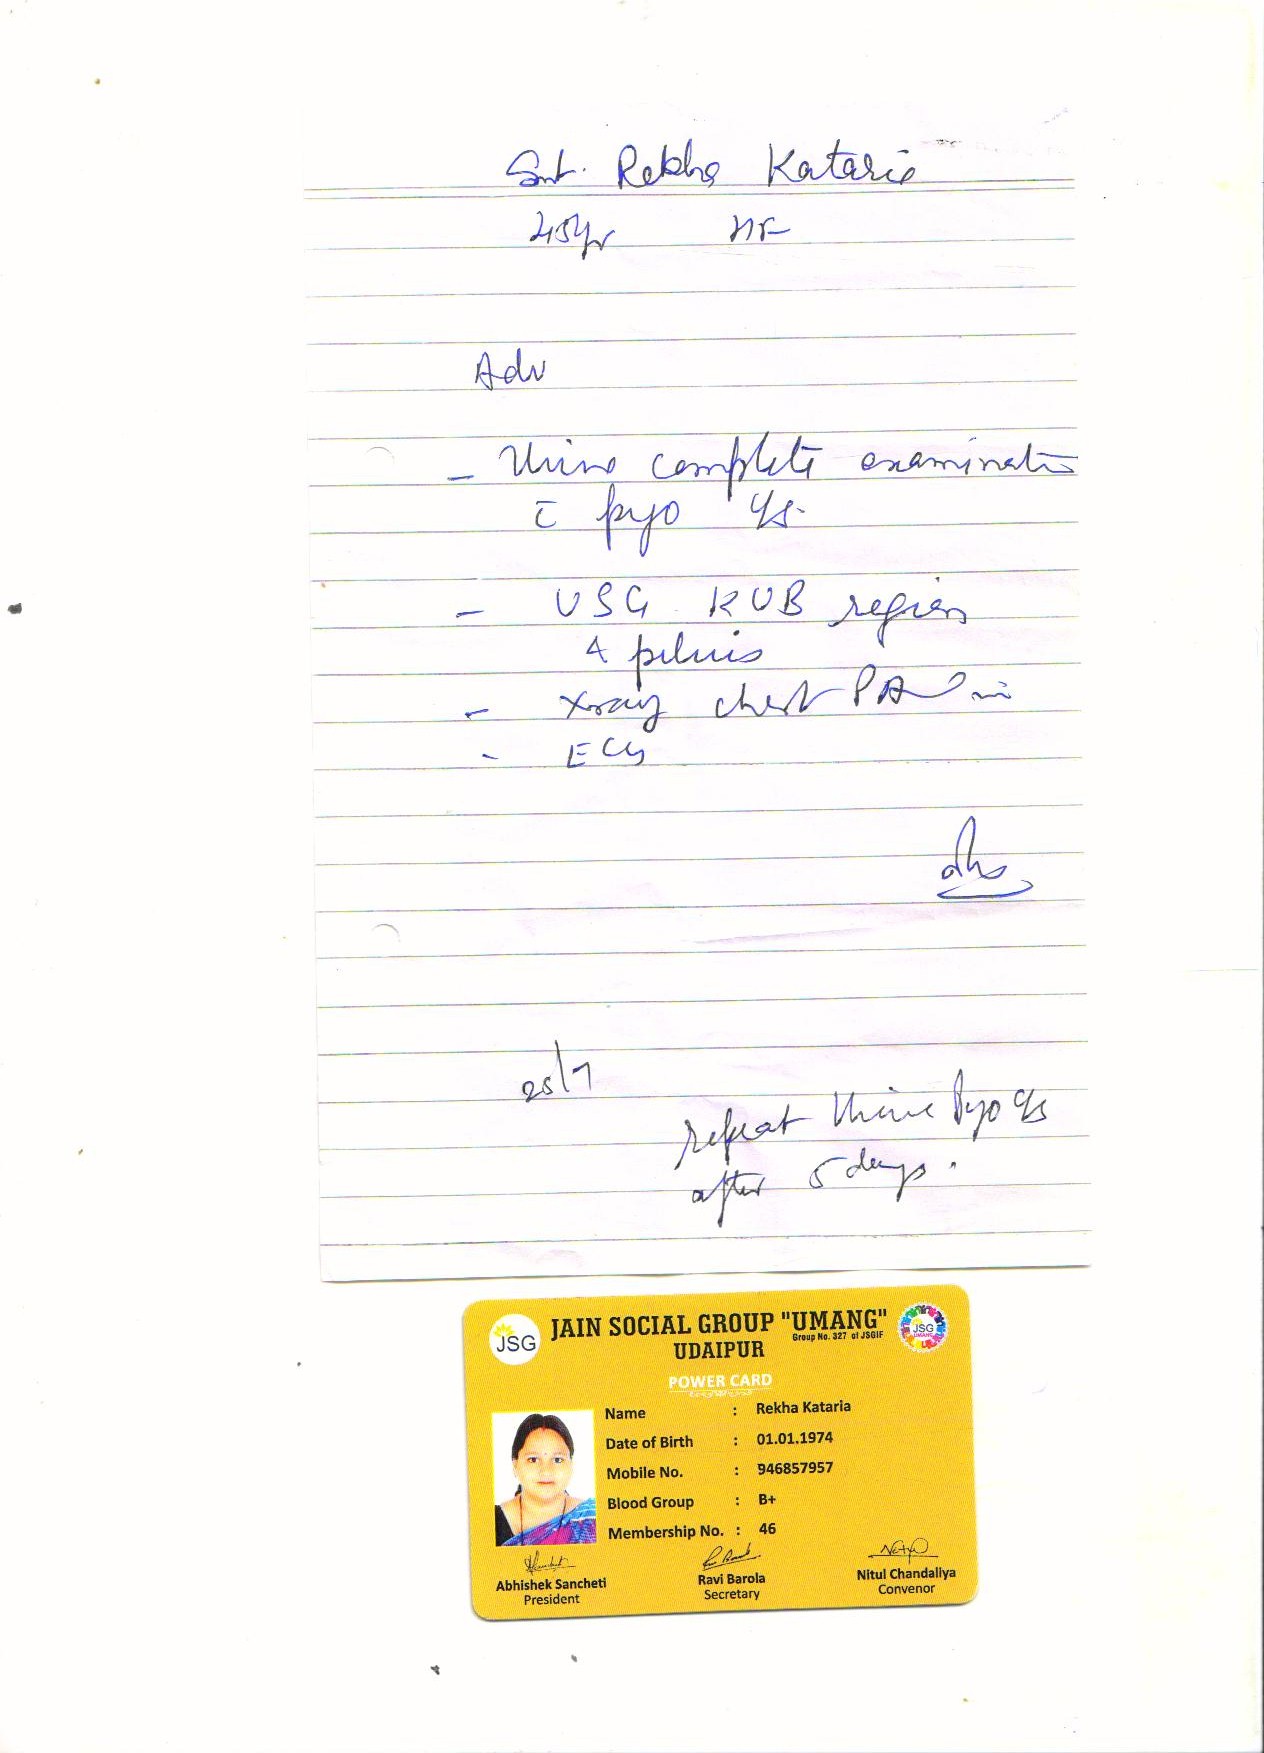 Smt. Rekha Kataria
45yr HF
Adv
- Urine complete examination
c̄ pyo c/s.
- USG KUB region
& pelvis
- Xray chest PA
- ECG
25/7
repeat Urine Pyo c/s
after 5 days.
JSG
JAIN SOCIAL GROUP "UMANG"
Group No. 327 of JSGIF
UDAIPUR
JSG
UMANG
POWER CARD
Name : Rekha Kataria
Date of Birth : 01.01.1974
Mobile No. : 946857957
Blood Group : B+
Membership No. : 46
Abhishek Sancheti
President
Ravi Barola
Secretary
Nitul Chandaliya
Convenor